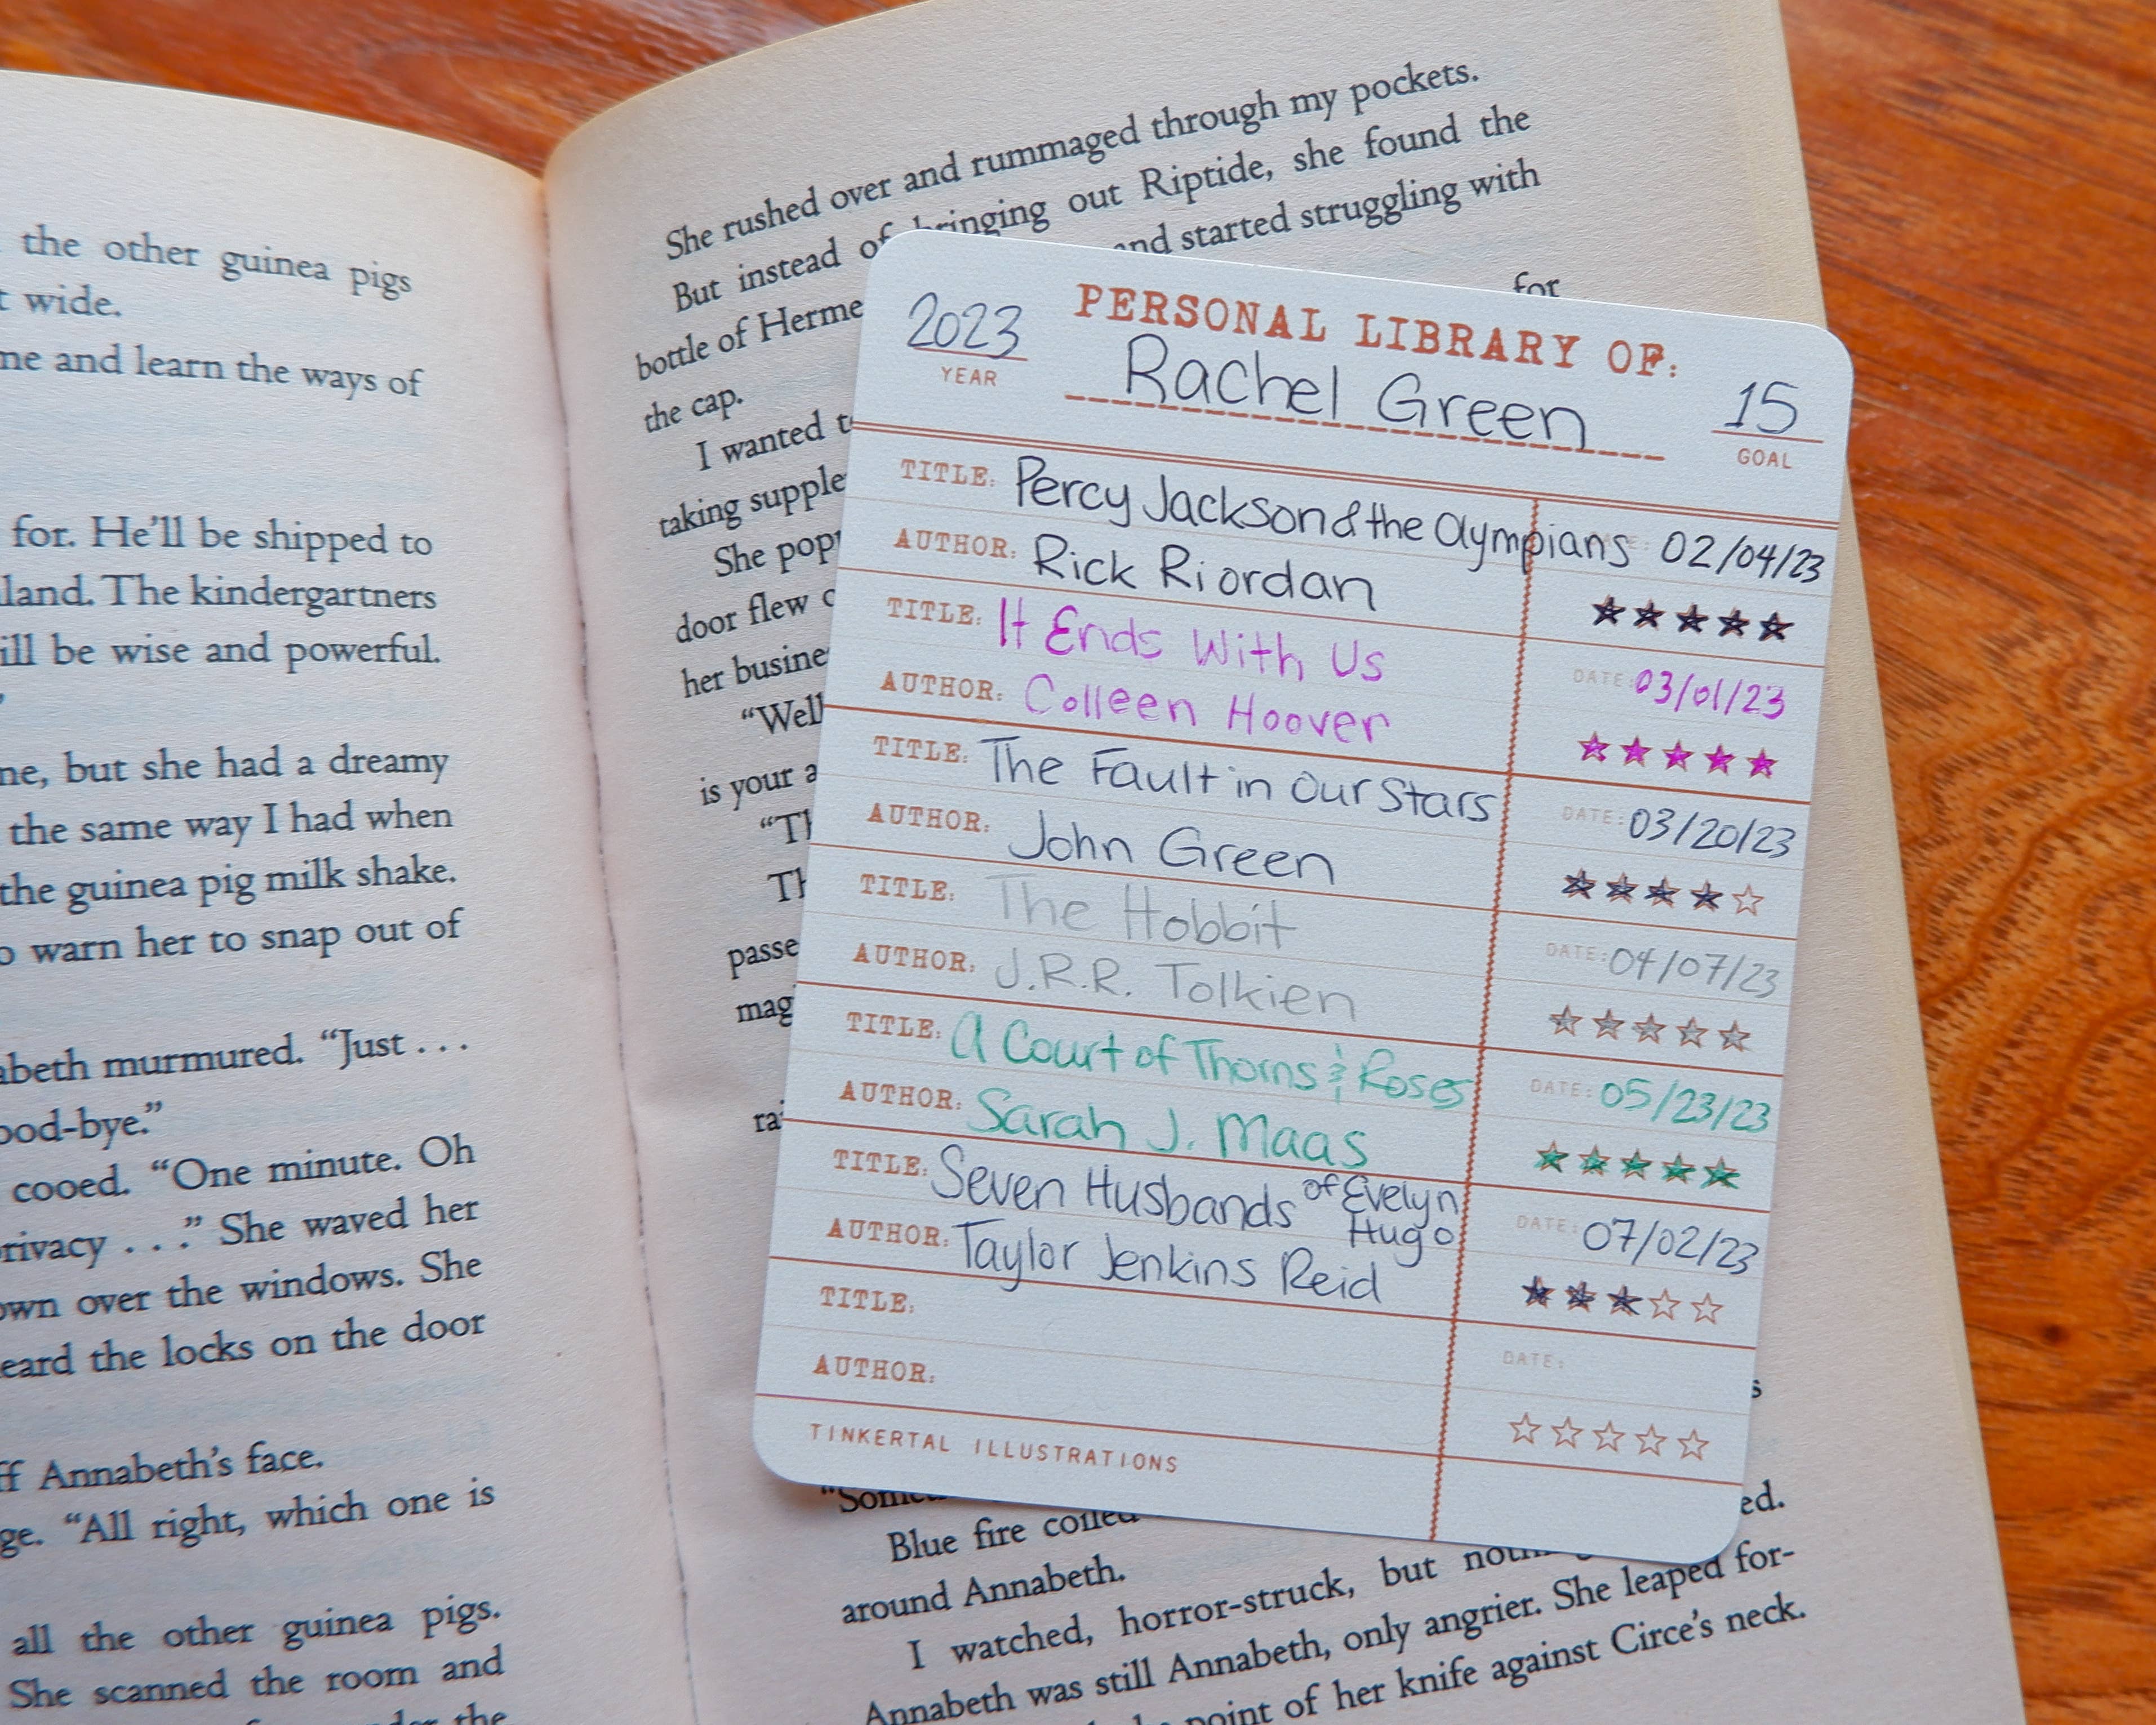 the other guinea pigs
wide.
me and learn the ways of
for. He'll be shipped to
land. The kindergartners
ill be wise and powerful.
ne, but she had a dreamy
the same way I had when
the guinea pig milk shake.
o warn her to snap out of
abeth murmured. "Just . . .
ood-bye."
cooed. "One minute. Oh
rivacy . . ." She waved her
own over the windows. She
eard the locks on the door
ff Annabeth's face.
ge. "All right, which one is
all the other guinea pigs.
She scanned the room and
the
She rushed over and rummaged through my pockets.
But instead of bringing out Riptide, she found the
bottle of Herme and started struggling with
the cap. for
I wanted t
taking supple
She pop
door flew
her busine
"Well
is your a
"Th
Th
passe
mag
ra
2023 PERSONAL LIBRARY OF:
YEAR Rachel Green 15
GOAL
TITLE: Percy Jackson & the Olympians 02/04/23
AUTHOR: Rick Riordan
TITLE: It Ends With Us DATE: 03/01/23
AUTHOR: Colleen Hoover
TITLE: The Fault in Our Stars DATE: 03/20/23
AUTHOR: John Green
TITLE: The Hobbit DATE: 04/07/23
AUTHOR: J.R.R. Tolkien
TITLE: A Court of Thorns & Roses DATE: 05/23/23
AUTHOR: Sarah J. Maas
TITLE: Seven Husbands of Evelyn Hugo DATE: 07/02/23
AUTHOR: Taylor Jenkins Reid
TITLE: DATE:
AUTHOR:
TINKERTAL ILLUSTRATIONS
s
ed.
Blue fire coiled
around Annabeth.
I watched, horror-struck, but
Annabeth was still Annabeth, only angrier. She leaped for-
point of her knife against Circe's neck.